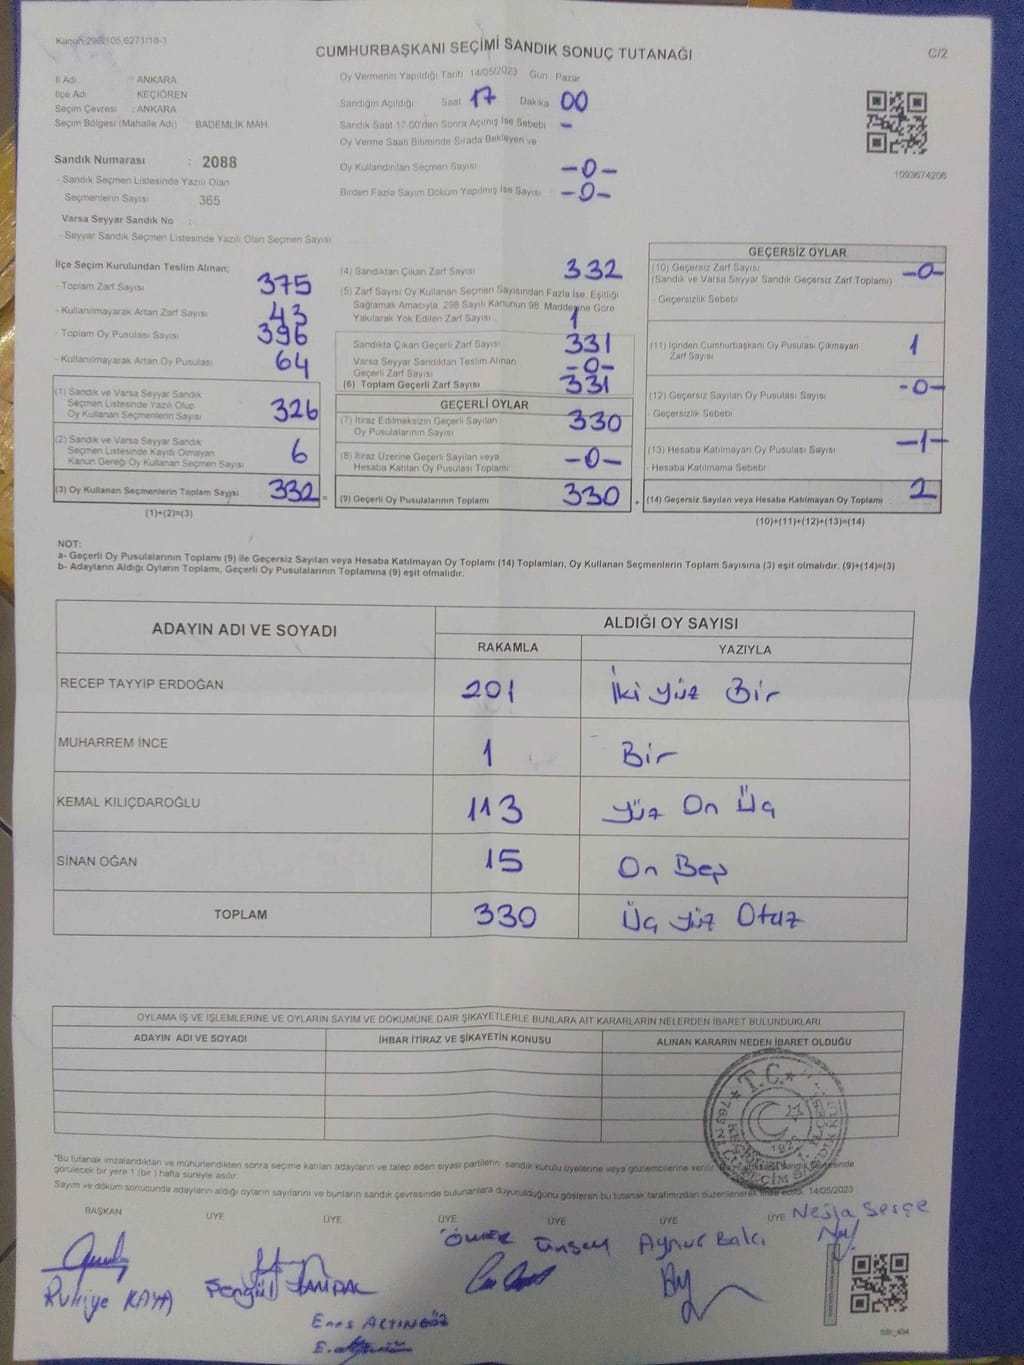 Kanun:298/105,6271/18-1
CUMHURBAŞKANI SEÇİMİ SANDIK SONUÇ TUTANAĞI
C/2
İl Adı : ANKARA
İlçe Adı : KEÇİÖREN
Seçim Çevresi : ANKARA
Seçim Bölgesi (Mahalle Adı) BADEMLİK MAH.
Sandık Numarası : 2088
- Sandık Seçmen Listesinde Yazılı Olan
Seçmenlerin Sayısı 365
Varsa Seyyar Sandık No :
- Seyyar Sandık Seçmen Listesinde Yazılı Olan Seçmen Sayısı
Oy Vermenin Yapıldığı Tarih 14/05/2023 Gün Pazar
Sandığın Açıldığı Saat 17 Dakika 00
Sandık Saat 17.00'den Sonra Açımış İse Sebebi -
Oy Verme Saati Bitiminde Sırada Bekleyen ve
Oy Kullandırılan Seçmen Sayısı -0-
Birden Fazla Sayım Döküm Yapılmış İse Sayısı -0-
1093674206
İlçe Seçim Kurulundan Teslim Alınan;
- Toplam Zarf Sayısı 375
- Kullanılmayarak Artan Zarf Sayısı 43
- Toplam Oy Pusulası Sayısı 396
- Kullanılmayarak Artan Oy Pusulası 64
(1) Sandık ve Varsa Seyyar Sandık
Seçmen Listesinde Yazılı Olup
Oy Kullanan Seçmenlerin Sayısı 326
(2) Sandık ve Varsa Seyyar Sandık
Seçmen Listesinde Kayıtlı Olmayan
Kanun Gereği Oy Kullanan Seçmen Sayısı 6
(3) Oy Kullanan Seçmenlerin Toplam Sayısı 332 =
(1)+(2)=(3)
(4) Sandıktan Çıkan Zarf Sayısı 332
(5) Zarf Sayısı Oy Kullanan Seçmen Sayısından Fazla İse, Eşitliği
Sağlamak Amacıyla 298 Sayılı Kanunun 98. Maddesine Göre
Yakılarak Yok Edilen Zarf Sayısı 1
Sandıkta Çıkan Geçerli Zarf Sayısı 331
Varsa Seyyar Sandıktan Teslim Alınan
Geçerli Zarf Sayısı -0-
(6) Toplam Geçerli Zarf Sayısı 331
GEÇERLİ OYLAR
(7) İtiraz Edilmeksizin Geçerli Sayılan
Oy Pusulalarının Sayısı 330
(8) İtiraz Üzerine Geçerli Sayılan veya
Hesaba Katılan Oy Pusulası Toplamı -0-
(9) Geçerli Oy Pusulalarının Toplamı 330 +
GEÇERSİZ OYLAR
(10) Geçersiz Zarf Sayısı -0-
(Sandık ve Varsa Seyyar Sandık Geçersiz Zarf Toplamı)
- Geçersizlik Sebebi
(11) İçinden Cumhurbaşkanı Oy Pusulası Çıkmayan
Zarf Sayısı 1
(12) Geçersiz Sayılan Oy Pusulası Sayısı -0-
- Geçersizlik Sebebi
(13) Hesaba Katılmayan Oy Pusulası Sayısı -1-
- Hesaba Katılmama Sebebi
(14) Geçersiz Sayılan veya Hesaba Katılmayan Oy Toplamı 2
(10)+(11)+(12)+(13)=(14)
NOT:
a- Geçerli Oy Pusulalarının Toplamı (9) ile Geçersiz Sayılan veya Hesaba Katılmayan Oy Toplamı (14) Toplamları, Oy Kullanan Seçmenlerin Toplam Sayısına (3) eşit olmalıdır. (9)+(14)=(3)
b- Adayların Aldığı Oyların Toplamı, Geçerli Oy Pusulalarının Toplamına (9) eşit olmalıdır.
ADAYIN ADI VE SOYADI ALDIĞI OY SAYISI
RAKAMLA YAZIYLA
RECEP TAYYİP ERDOĞAN 201 İki yüz Bir
MUHARREM İNCE 1 Bir
KEMAL KILIÇDAROĞLU 113 yüz On Üç
SİNAN OĞAN 15 On Beş
TOPLAM 330 Üç yüz Otuz
OYLAMA İŞ VE İŞLEMLERİNE VE OYLARIN SAYIM VE DÖKÜMÜNE DAİR ŞİKAYETLERLE BUNLARA AİT KARARLARIN NELERDEN İBARET BULUNDUKLARI
ADAYIN ADI VE SOYADI İHBAR İTİRAZ VE ŞİKAYETİN KONUSU ALINAN KARARIN NEDEN İBARET OLDUĞU
T.C.
*Bu tutanak imzalandıktan ve mühürlendikten sonra seçime katılan adayların ve talep eden siyasi partilerin sandık kurulu üyelerine veya gözlemcilerine verilir.
görülecek bir yere 1 (bir) hafta süreyle asılır.
Sayım ve döküm sonucunda adayların aldığı oyların sayılarını ve bunların sandık çevresinde bulunanlara duyurulduğunu gösteren bu tutanak tarafımızdan düzenlenerek 14/05/2023
BAŞKAN ÜYE ÜYE ÜYE ÜYE ÜYE ÜYE Neşla Serçe
ÖMER ÜNSAL Aynur Balcı
Ruhiye KAYA Şengül
Enes ALTINGÖZ